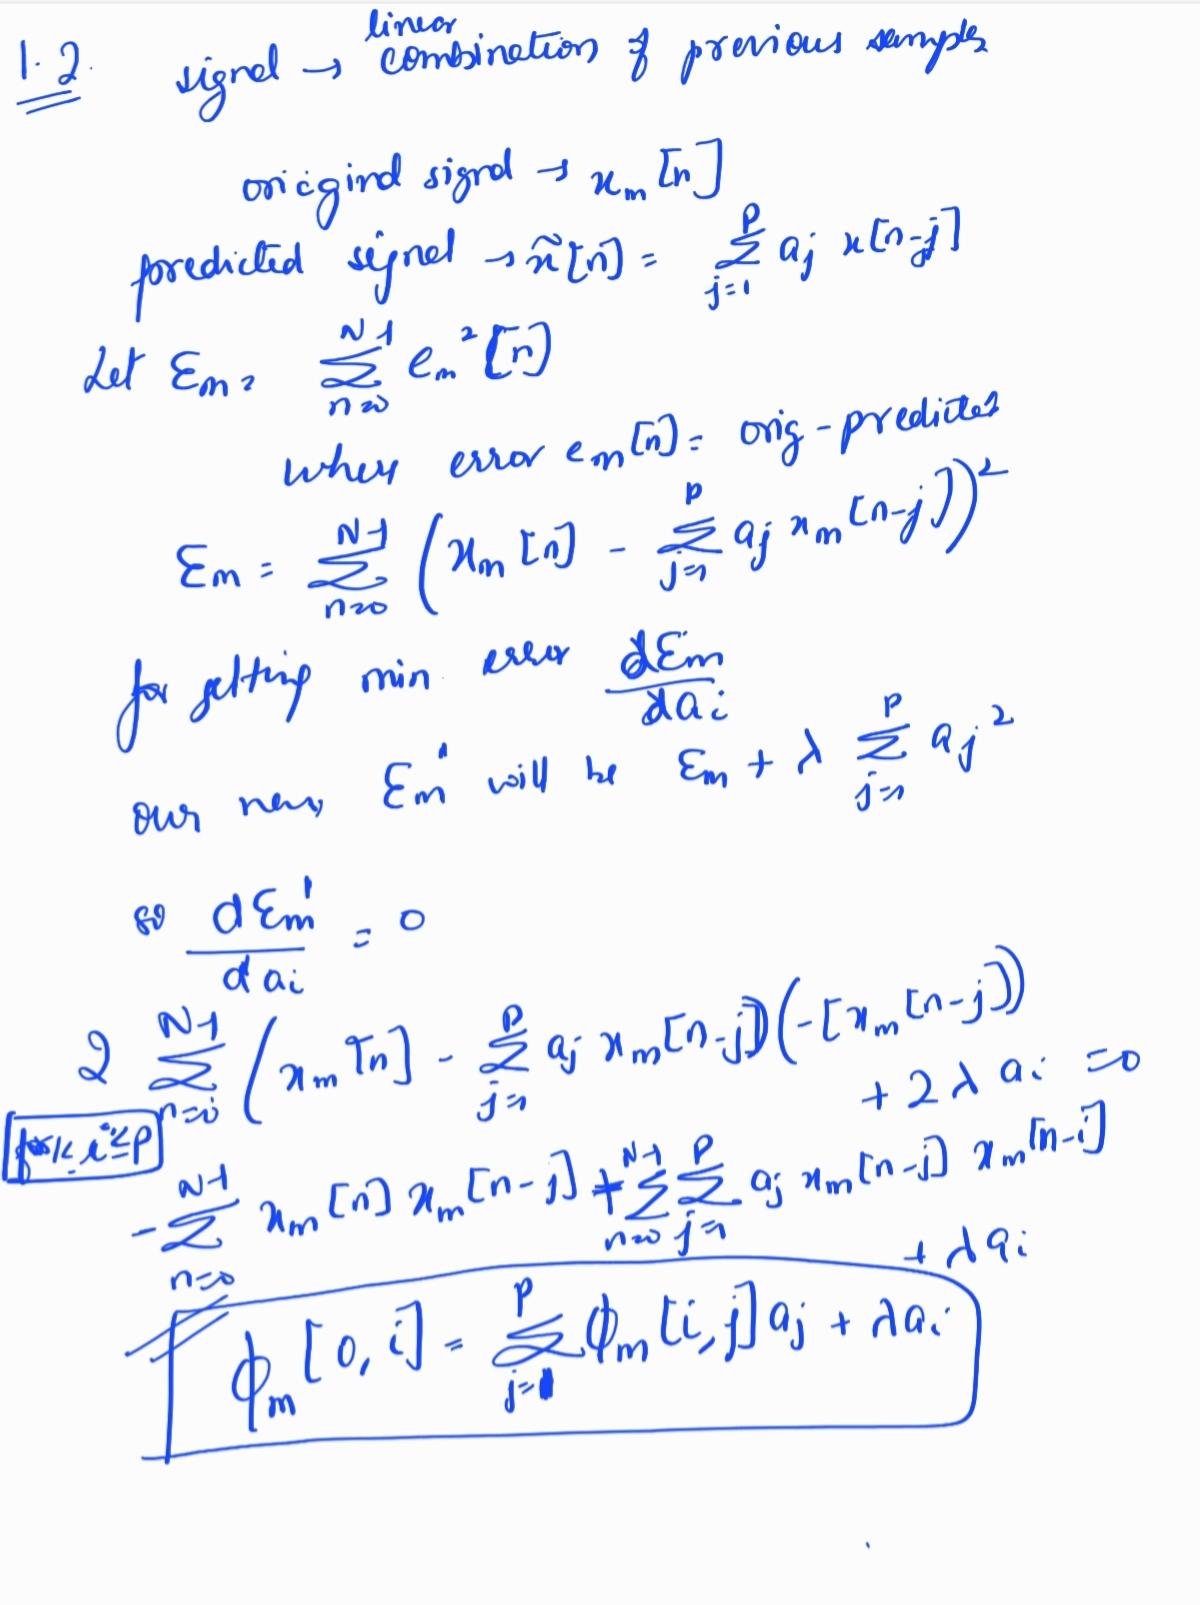 1.2. signal → linear combination of previous samples
oricginal signal → x_m [n]
predicted signal → x̃[n] = Σ_{j=1}^{P} a_j x[n-j]
Let Ɛ_m = Σ_{n=0}^{N-1} e_m²[n]
where error e_m[n] = orig - predicted
Ɛ_m = Σ_{n=0}^{N-1} (x_m [n] - Σ_{j=1}^{P} a_j x_m [n-j])²
for getting min error dƐ_m/da_i
our new, Ɛ_m' will be Ɛ_m + λ Σ_{j=1}^{P} a_j²
so dƐ_m'/da_i = 0
2 Σ_{n=0}^{N-1} (x_m [n] - Σ_{j=1}^{P} a_j x_m[n-j]) (-[x_m [n-j])
+ 2λ a_i = 0
for 1≤ i ≤ P
- Σ_{n=0}^{N-1} x_m [n] x_m [n-j] + Σ_{n=0}^{N-1} Σ_{j=1}^{P} a_j x_m [n-j] x_m [n-i]
+ λ a_i
ϕ_m [0, i] = Σ_{j=1}^{P} ϕ_m [i, j] a_j + λ a_i